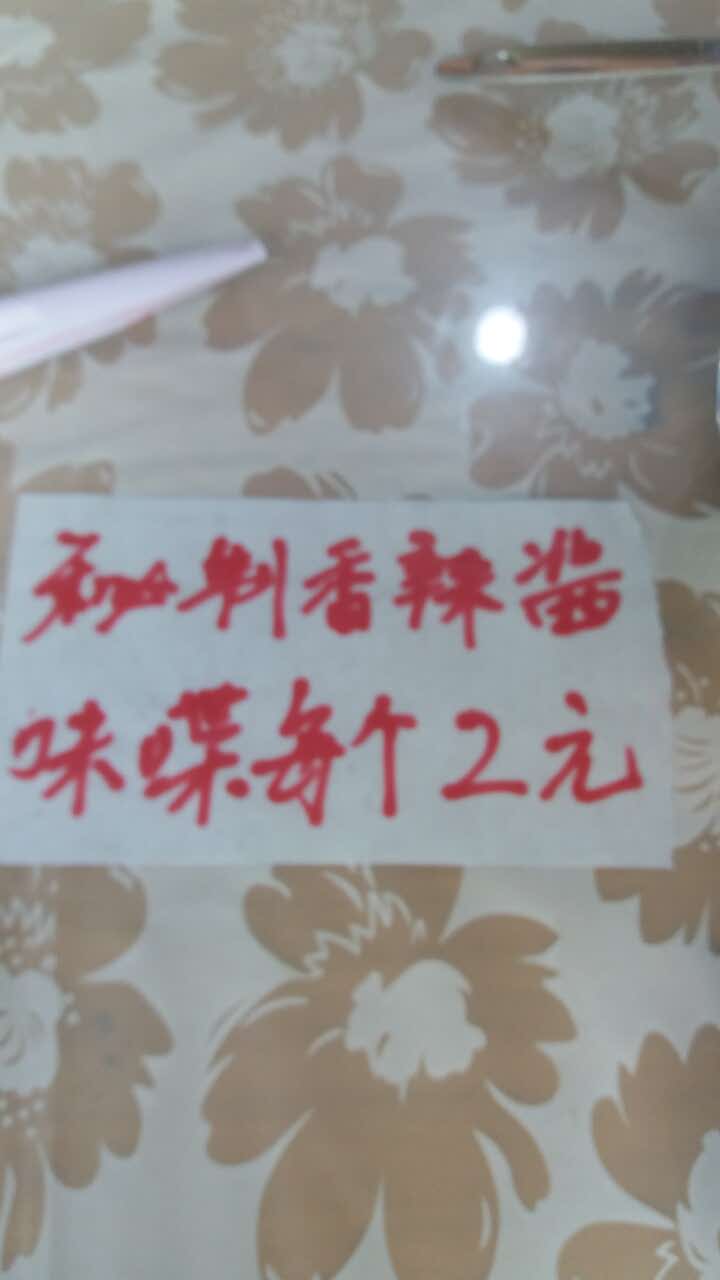 秘制香辣酱
味碟每个2元